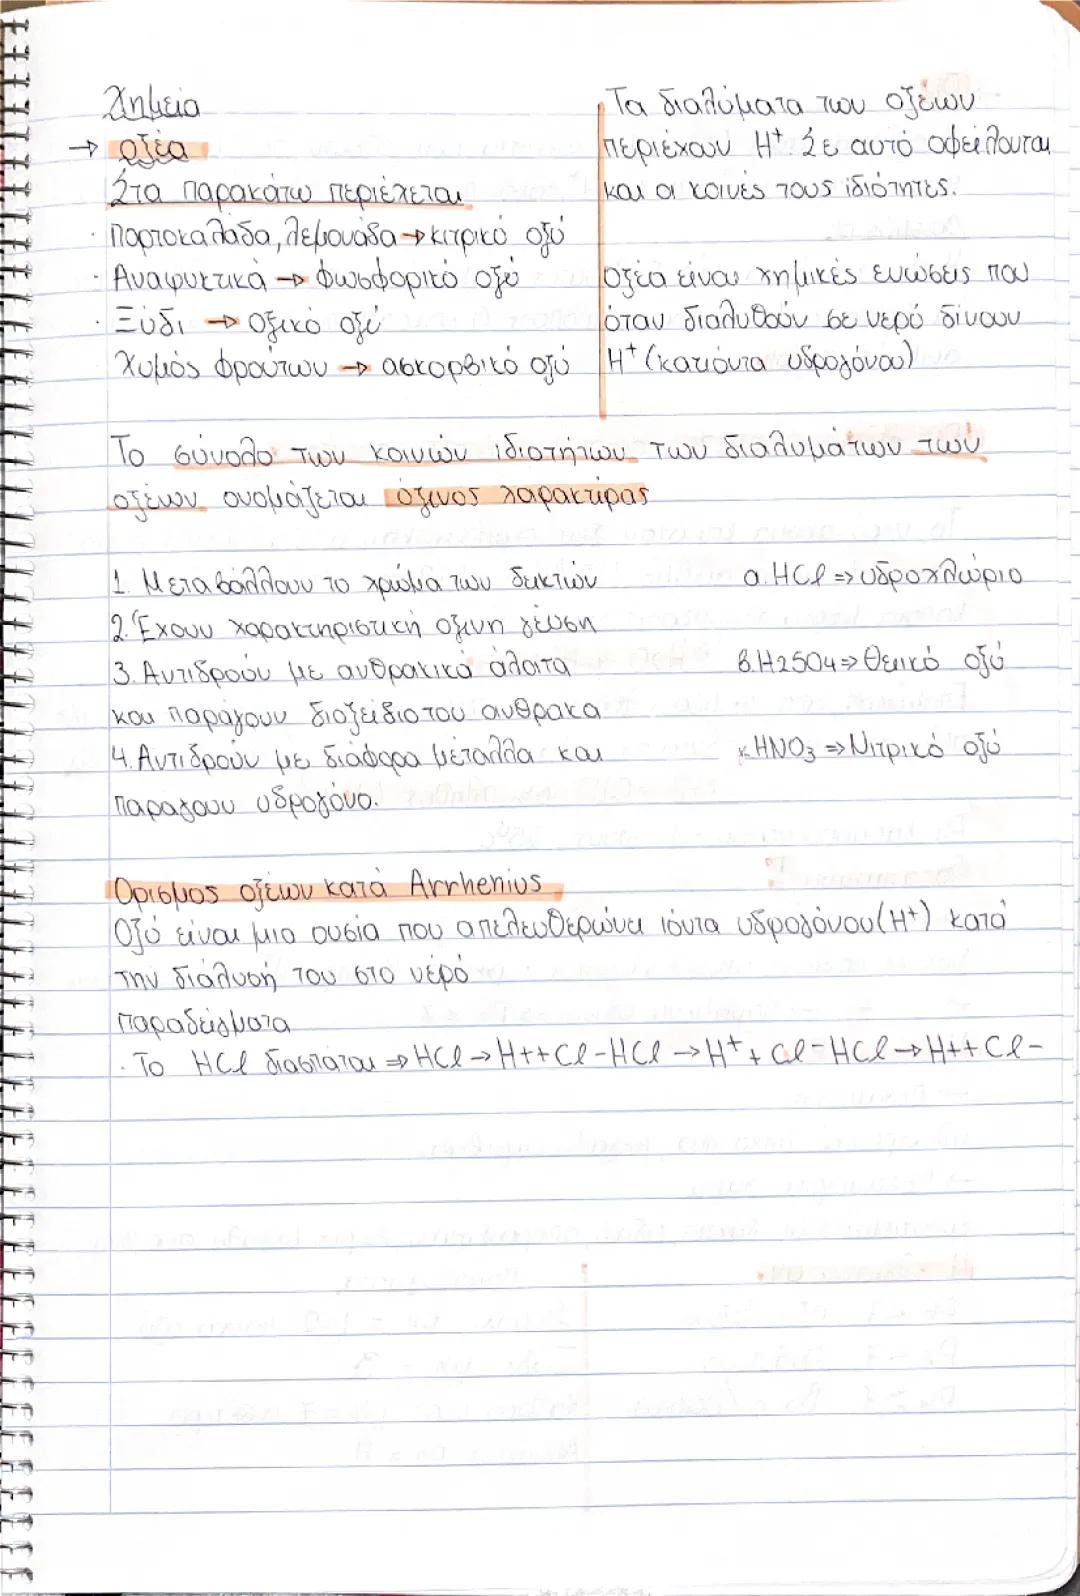 Χημεία
→ οξέα
Στα παρακάτω περιέχεται
· Πορτοκαλάδα, λεμονάδα → κιτρικό οξύ
· Αναψυκτικά → φωσφορικό οξύ
· Ξύδι → οξικό οξύ
Χυμός φρούτων → ασκορβικό οξύ
Τα διαλύματα των οξέων
περιέχουν H⁺. Σε αυτό οφείλονται
και οι κοινές τους ιδιότητες.
Οξέα είναι χημικές ενώσεις που
όταν διαλυθούν σε νερό δίνουν
H⁺ (κατιόντα υδρογόνου)
Το σύνολο των κοινών ιδιοτήτων των διαλυμάτων των
οξέων ονομάζεται όξινος χαρακτήρας
1. Μεταβάλλουν το χρώμα των δεικτών
2. Έχουν χαρακτηριστική οξινη γεύση
3. Αντιδρούν με ανθρακικά άλατα
και παράγουν διοξείδιο του ανθρακα
4. Αντιδρούν με διάφορα μέταλλα και
παραγουν υδρογόνο.
α. HCl => υδροχλώριο
β. H2SO4 => Θειικό οξύ
κ HNO3 => Νιτρικό οξύ
Ορισμος οξέων κατά Arrhenius
Οξύ είναι μια ουσία που απελευθερώνει ιόντα υδρογόνου (H+) κατά
την διάλυσή του στο νερό
παραδείγματα
· Το HCl διασπάται => HCl → H++Cl-HCl → H⁺+Cl⁻HCl → H++Cl-